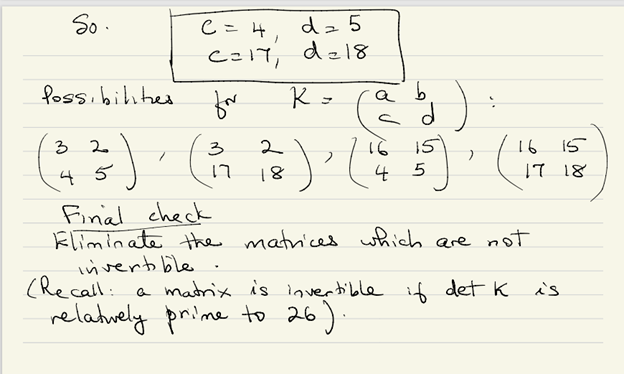 So.
c = 4, d = 5
c = 17, d = 18
Possibilities for K = (a b
c d) :
(3 2
4 5), (3 2
17 18), (16 15
4 5), (16 15
17 18)
Final check
Eliminate the matrices which are not
invertible.
(Recall: a matrix is invertible if det K is
relatively prime to 26).